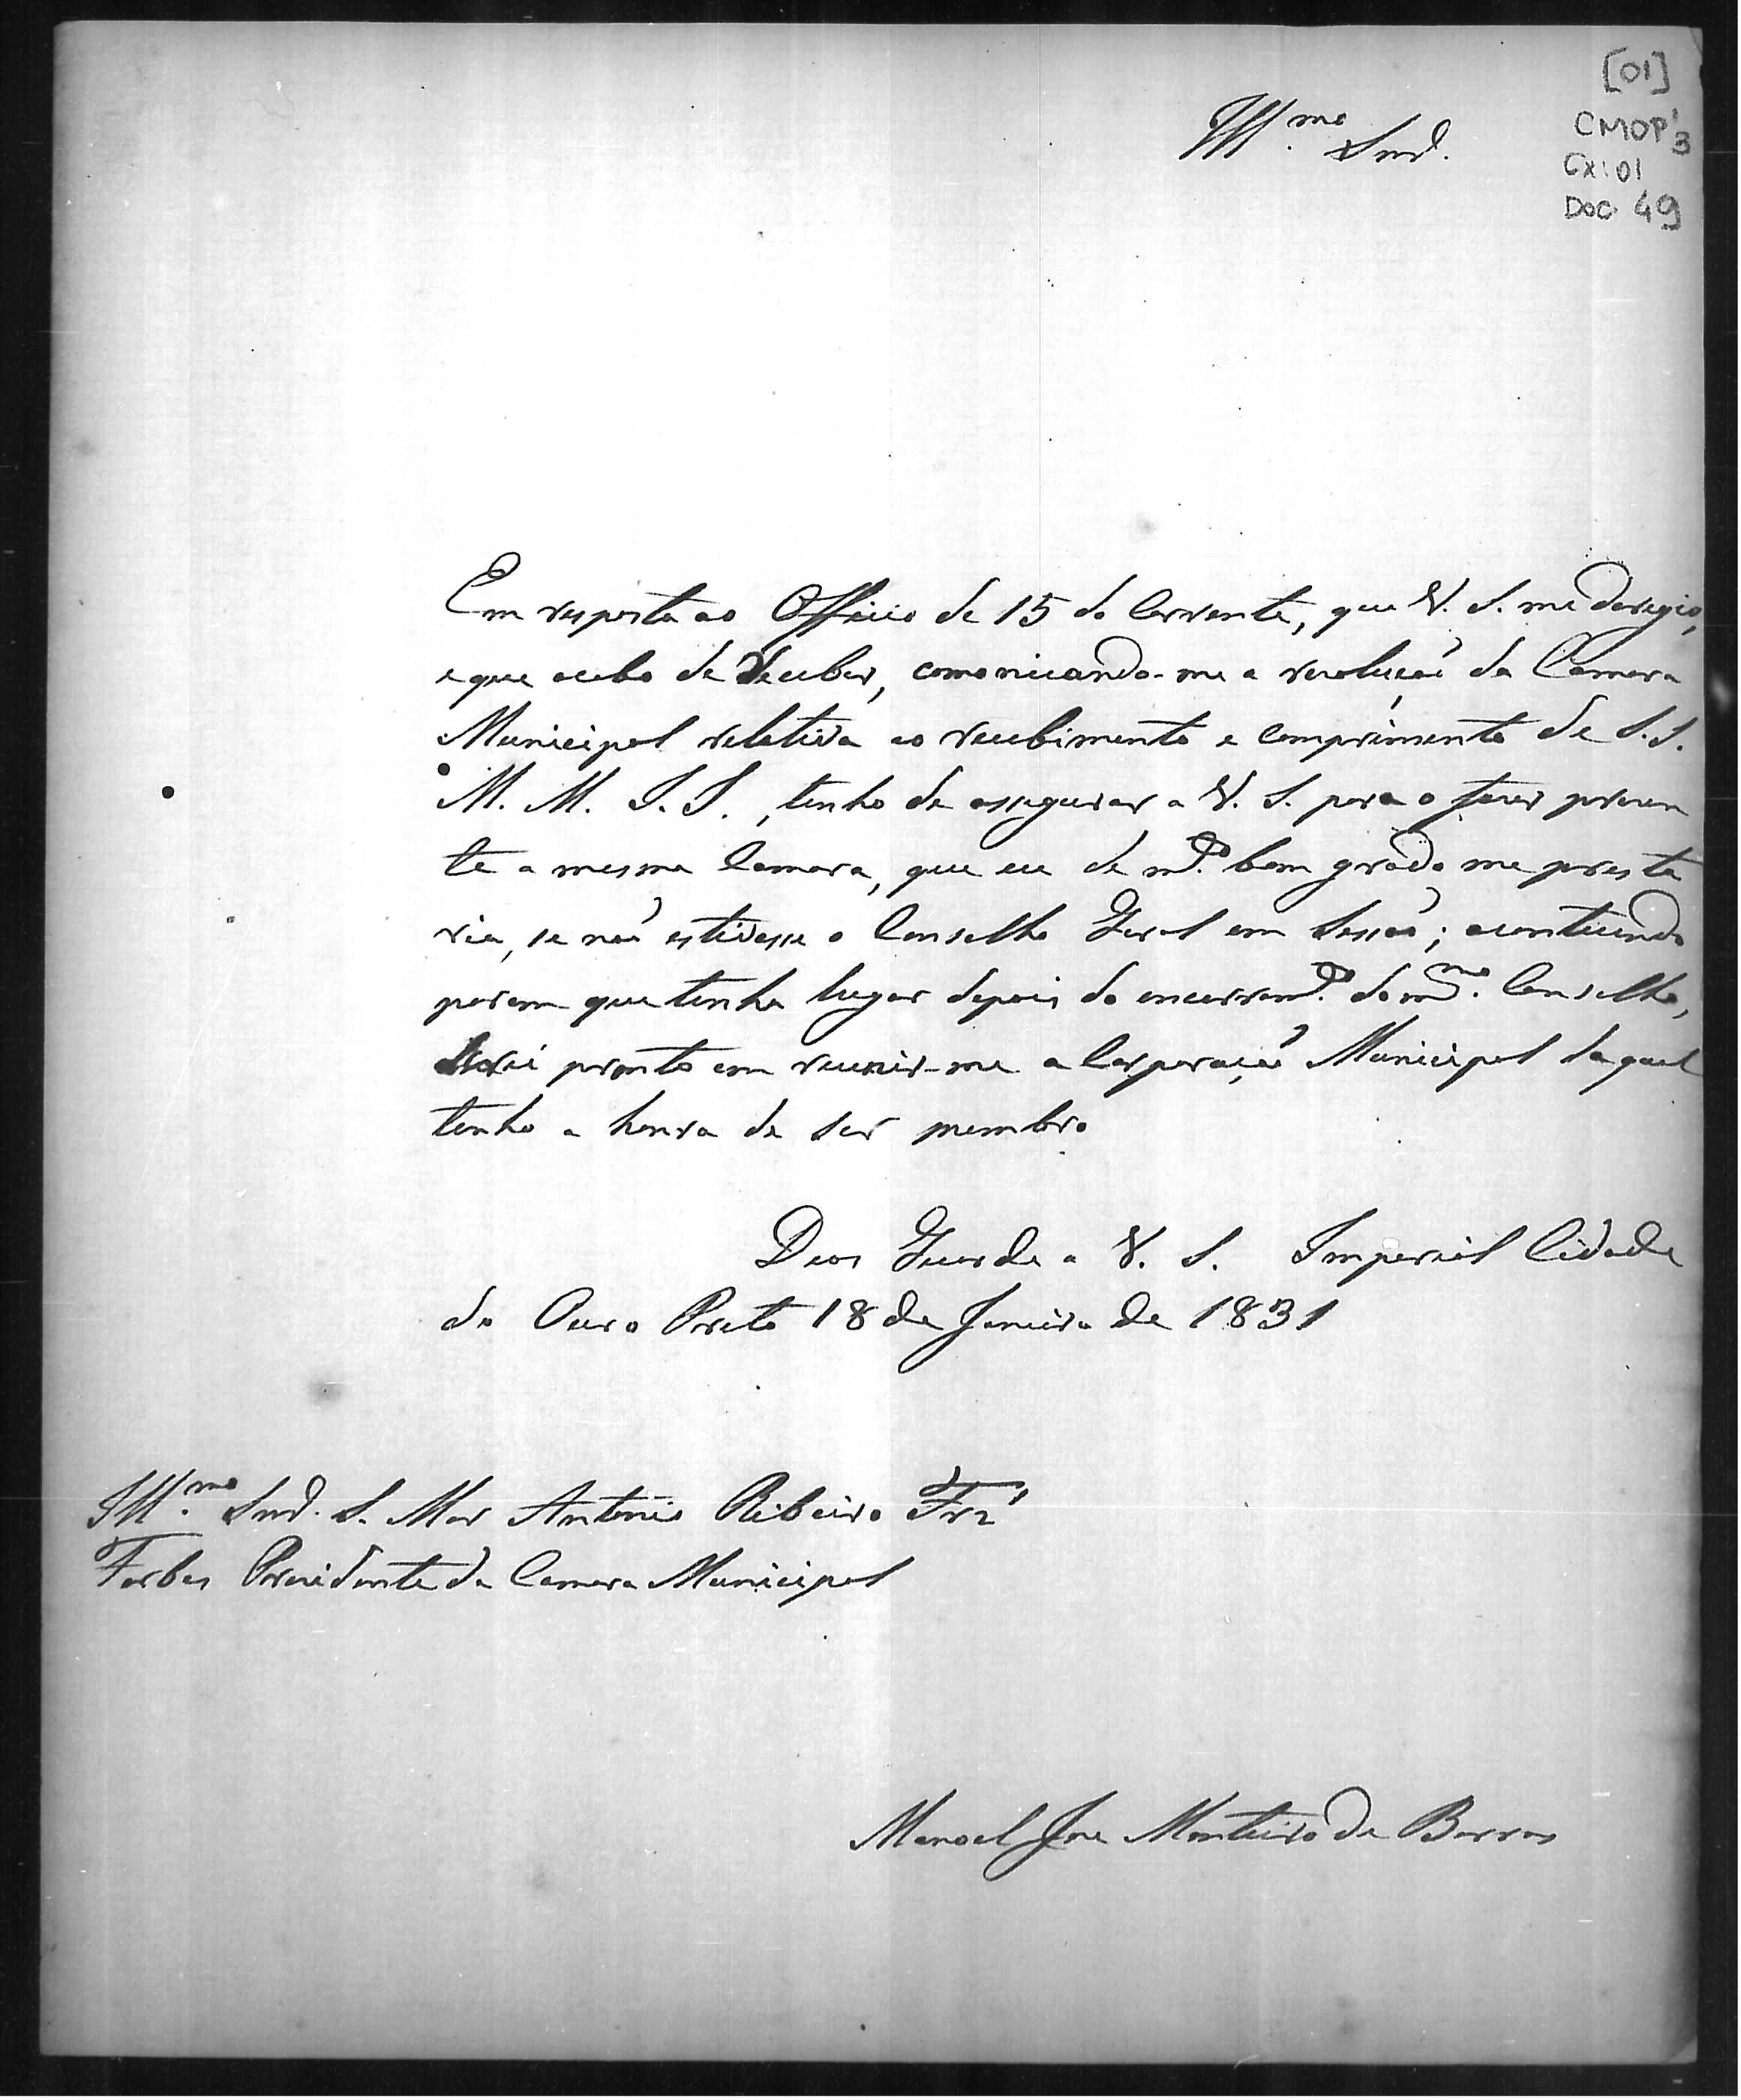 [01]
CMOP 3
Cx: 01
Doc 49
Illmo. Snr.
Em resposta ao Officio de 15 do Corrente, que V. S. me deregio,
e que acabo de receber, comonicando-me a resolução da Camara
Municipal relativa ao recebimento e comprimento de S.S.
M. M. I. I., tenho de assegurar a V. S. para o fazer prezen
te a mesma Camara, que eu de mto. bom grado me presta
ria, se não estivesse o Conselho Geral em Sessão; acontecendo
porem que tenha lugar depois do encerramto. do mmo. Conselho,
serei pronto em reunir-me a Corporação Municipal da qual
tenho a honra de ser membro
Deos Guarde a V. S. Imperial Cidade
do Ouro Preto 18 de Janeiro de 1831
Illmo. Snr. S. Mor Antonio Ribeiro Frz'
Forbes Prezidente da Camara Municipal
Manoel Jose Monteiro de Barros